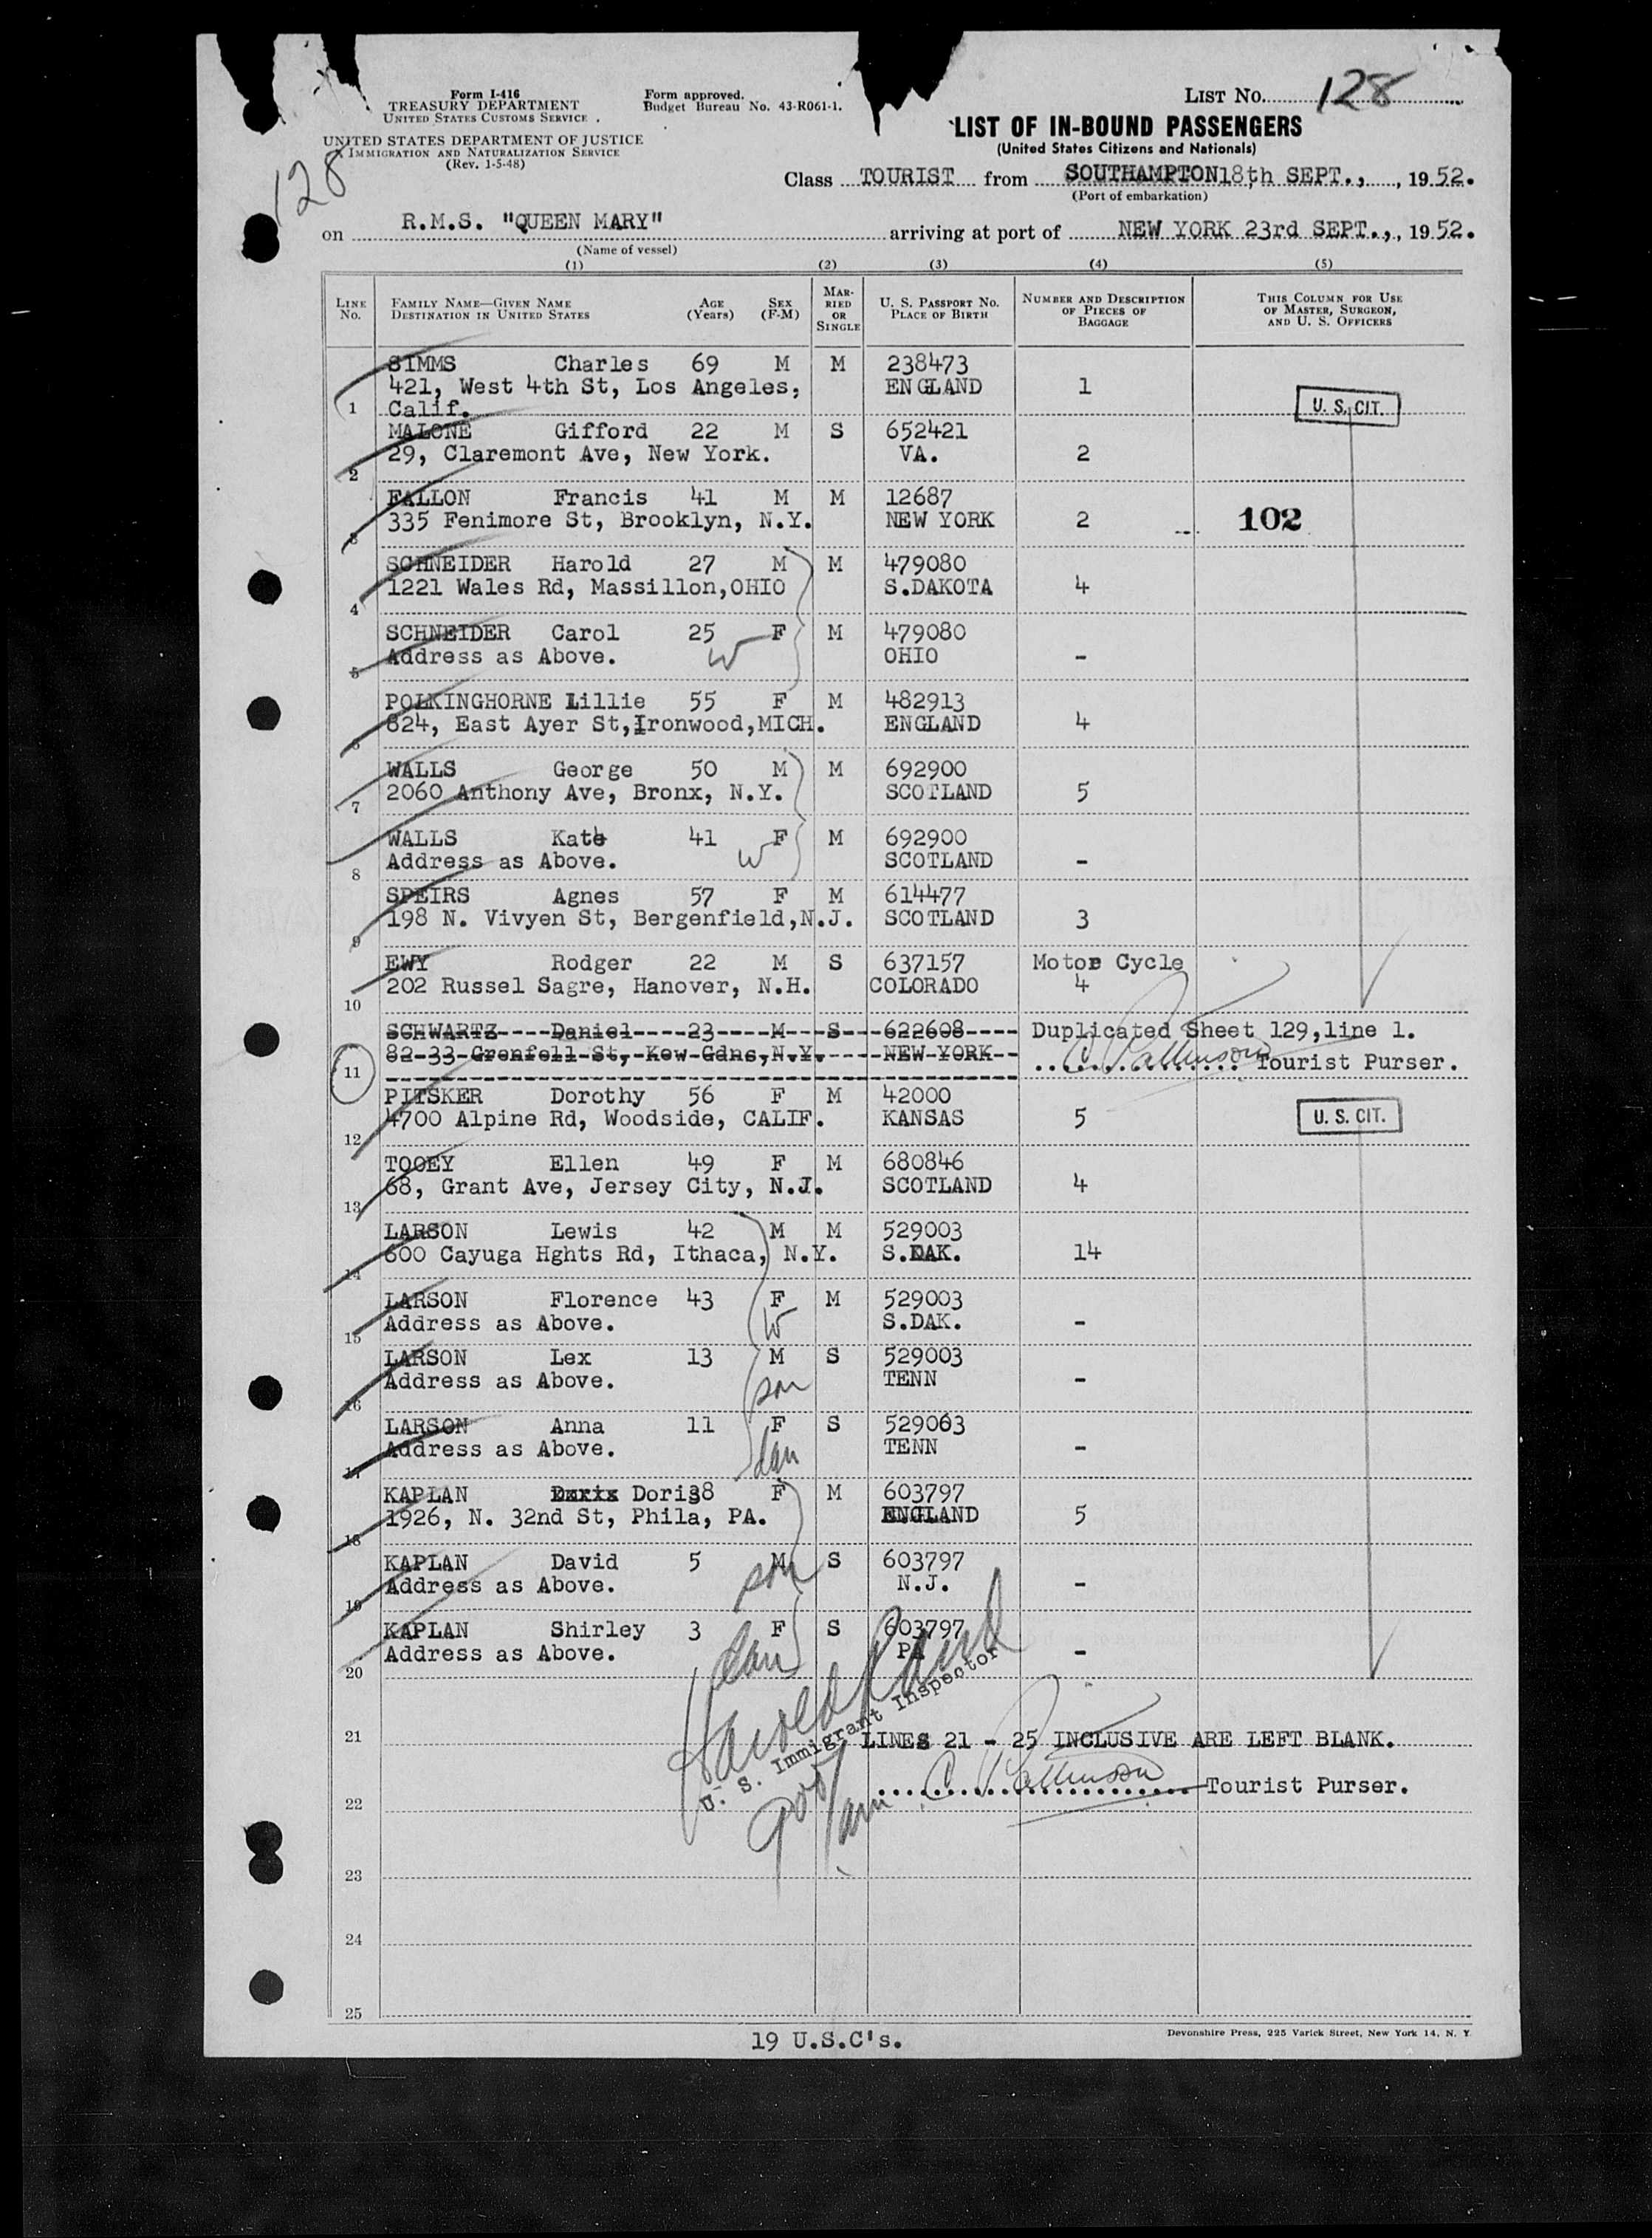 Form I-416
TREASURY DEPARTMENT
UNITED STATES CUSTOMS SERVICE
UNITED STATES DEPARTMENT OF JUSTICE
IMMIGRATION AND NATURALIZATION SERVICE
(Rev. 1-5-48)
Form approved.
Budget Bureau No. 43-R061-1.
LIST NO. 128
128
LIST OF IN-BOUND PASSENGERS
(United States Citizens and Nationals)
Class TOURIST from SOUTHAMPTON 18th SEPT., , 1952.
(Port of embarkation)
on R.M.S. "QUEEN MARY" arriving at port of NEW YORK 23rd SEPT., , 1952.
(Name of vessel)
(1) (2) (3) (4) (5)
LINE No. FAMILY NAME—GIVEN NAME DESTINATION IN UNITED STATES AGE (Years) SEX (F-M) MARRIED OR SINGLE U. S. PASSPORT NO. PLACE OF BIRTH NUMBER AND DESCRIPTION OF PIECES OF BAGGAGE THIS COLUMN FOR USE OF MASTER, SURGEON, AND U. S. OFFICERS
SIMMS Charles 69 M M 238473
421, West 4th St, Los Angeles, ENGLAND 1
1 Calif. U. S. CIT.
MALONE Gifford 22 M S 652421
29, Claremont Ave, New York. VA. 2
2
FALLON Francis 41 M M 12687
335 Fenimore St, Brooklyn, N.Y. NEW YORK 2 102
3
SCHNEIDER Harold 27 M M 479080
1221 Wales Rd, Massillon,OHIO S.DAKOTA 4
4
SCHNEIDER Carol 25 F M 479080
Address as Above. W OHIO -
5
POLKINGHORNE Lillie 55 F M 482913
824, East Ayer St,Ironwood,MICH. ENGLAND 4
6
WALLS George 50 M M 692900
2060 Anthony Ave, Bronx, N.Y. SCOTLAND 5
7
WALLS Kate 41 F M 692900
Address as Above. W SCOTLAND -
8
SPEIRS Agnes 57 F M 614477
198 N. Vivyen St, Bergenfield,N.J. SCOTLAND 3
9
EWY Rodger 22 M S 637157 Motor Cycle
202 Russel Sagre, Hanover, N.H. COLORADO 4
10
SCHWARTZ----Daniel----23----M---S---622608---- Duplicated Sheet 129,line 1.
82-33-Grenfell-St,-Kew-Gdns,N.Y.-----NEW-YORK-- C Pattinson Tourist Purser.
11
PITSKER Dorothy 56 F M 42000
4700 Alpine Rd, Woodside, CALIF. KANSAS 5 U. S. CIT.
12
TOOEY Ellen 49 F M 680846
68, Grant Ave, Jersey City, N.J. SCOTLAND 4
13
LARSON Lewis 42 M M 529003
600 Cayuga Hghts Rd, Ithaca, N.Y. S.DAK. 14
14
LARSON Florence 43 F M 529003
Address as Above. W S.DAK. -
15
LARSON Lex 13 M S 529003
Address as Above. son TENN -
16
LARSON Anna 11 F S 529003
Address as Above. dau TENN -
17
KAPLAN Doris 38 F M 603797
1926, N. 32nd St, Phila, PA. ENGLAND 5
18
KAPLAN David 5 M S 603797
Address as Above. son N.J. -
19
KAPLAN Shirley 3 F S 603797
Address as Above. dau PA -
20
Harold
U. S. Immigrant Inspector
21 LINES 21 - 25 INCLUSIVE ARE LEFT BLANK.
C Pattinson Tourist Purser.
22
23
24
25
19 U.S.C's.
Devonshire Press, 225 Varick Street, New York 14, N. Y.